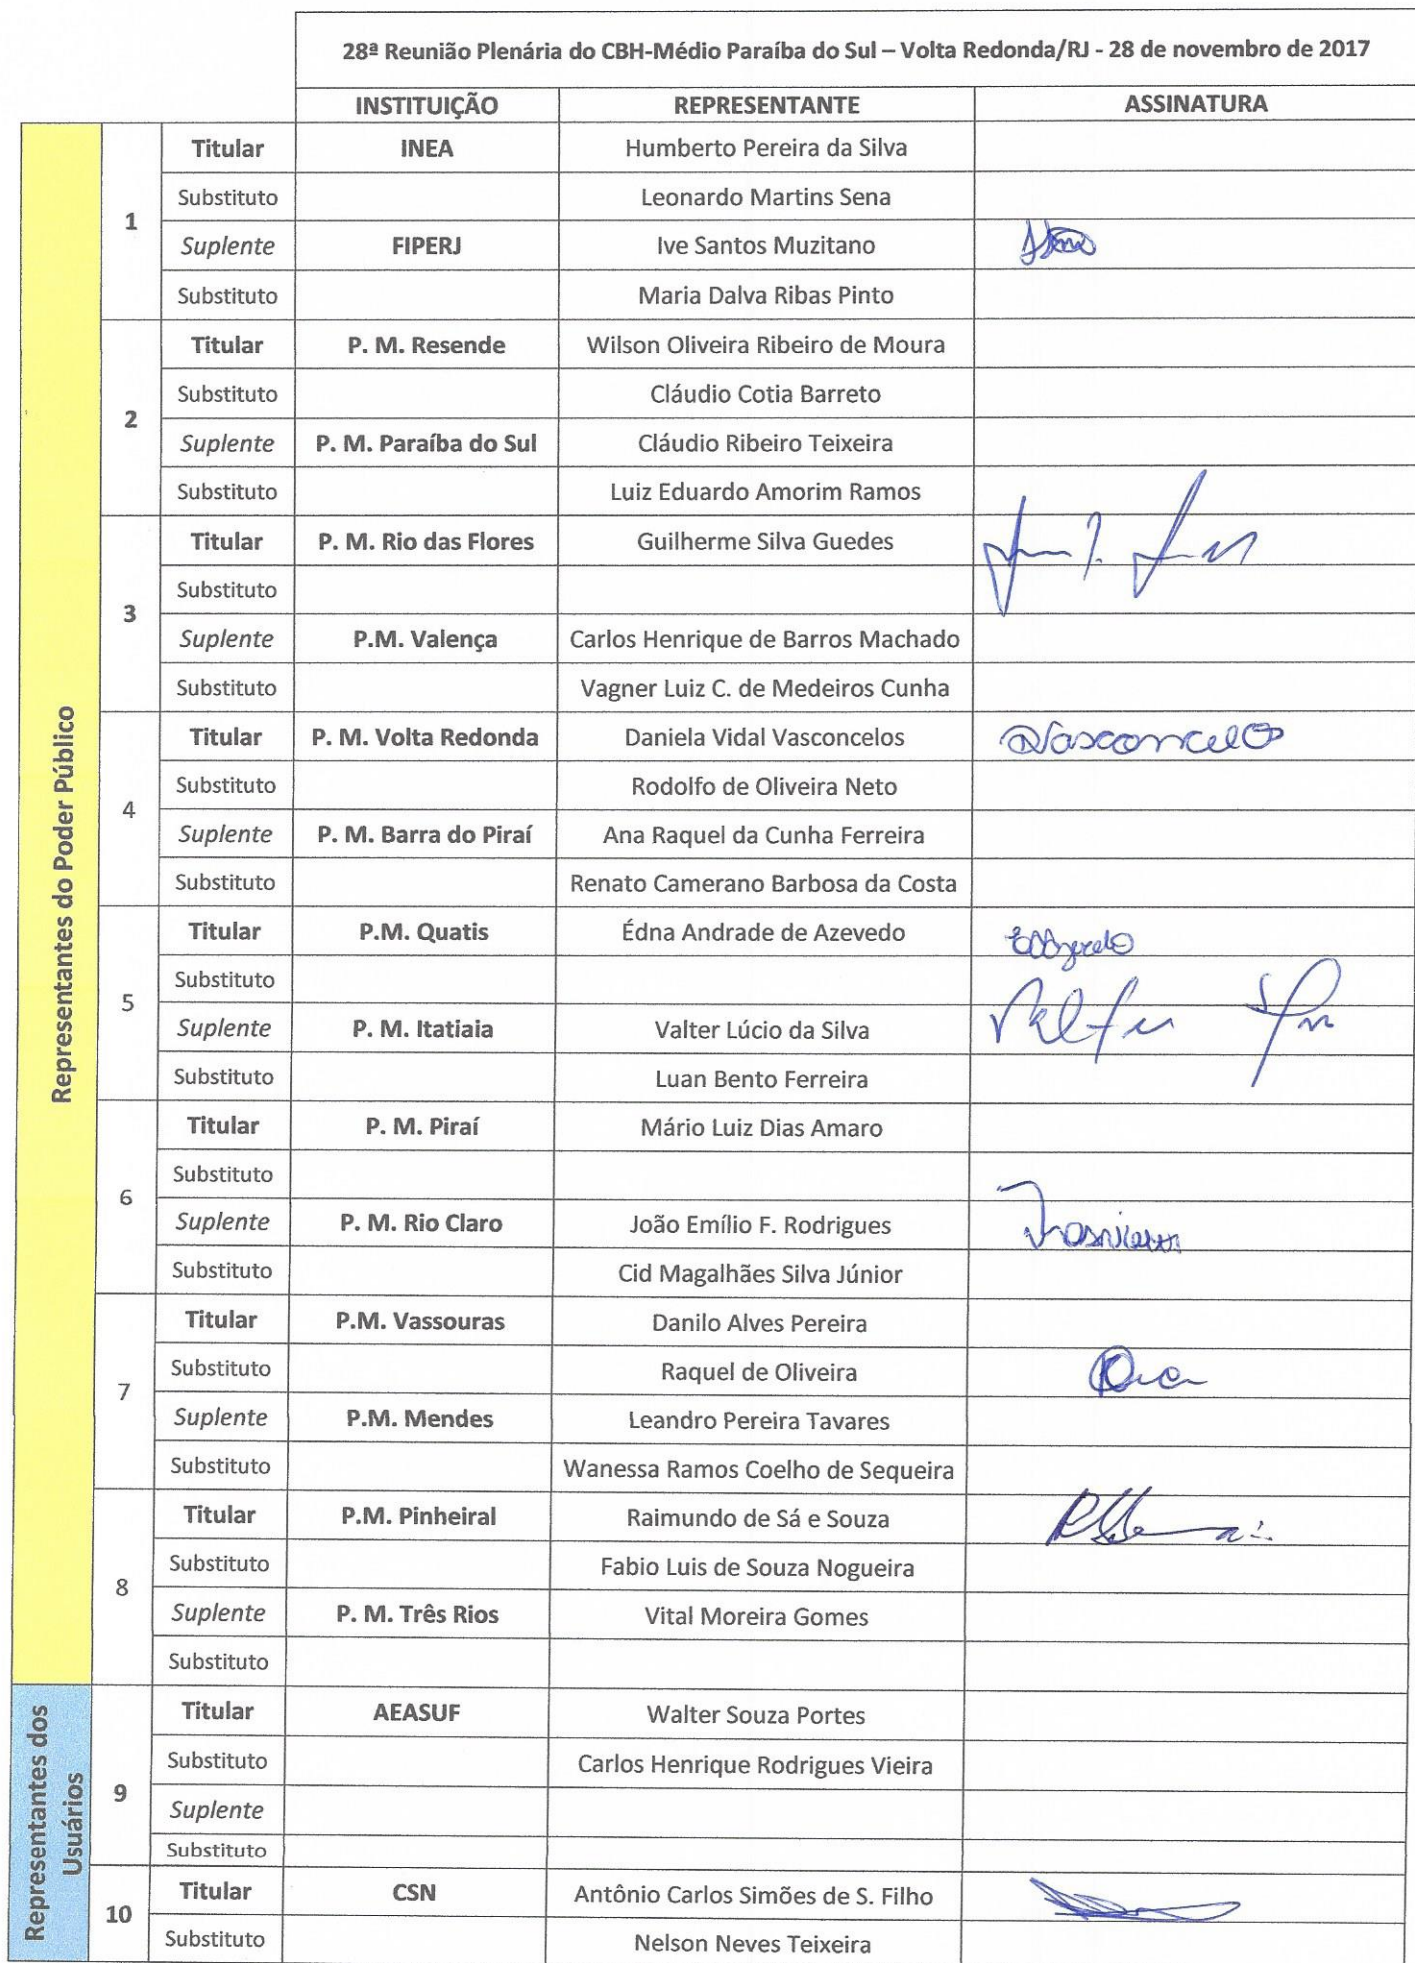 28ª Reunião Plenária do CBH-Médio Paraíba do Sul – Volta Redonda/RJ - 28 de novembro de 2017
INSTITUIÇÃO REPRESENTANTE ASSINATURA
Representantes do Poder Público
1
Titular INEA Humberto Pereira da Silva
Substituto Leonardo Martins Sena
Suplente FIPERJ Ive Santos Muzitano
Substituto Maria Dalva Ribas Pinto
2
Titular P. M. Resende Wilson Oliveira Ribeiro de Moura
Substituto Cláudio Cotia Barreto
Suplente P. M. Paraíba do Sul Cláudio Ribeiro Teixeira
Substituto Luiz Eduardo Amorim Ramos
3
Titular P. M. Rio das Flores Guilherme Silva Guedes
Substituto
Suplente P.M. Valença Carlos Henrique de Barros Machado
Substituto Vagner Luiz C. de Medeiros Cunha
4
Titular P. M. Volta Redonda Daniela Vidal Vasconcelos DVasconcelos
Substituto Rodolfo de Oliveira Neto
Suplente P. M. Barra do Piraí Ana Raquel da Cunha Ferreira
Substituto Renato Camerano Barbosa da Costa
5
Titular P.M. Quatis Édna Andrade de Azevedo
Substituto
Suplente P. M. Itatiaia Valter Lúcio da Silva
Substituto Luan Bento Ferreira
6
Titular P. M. Piraí Mário Luiz Dias Amaro
Substituto
Suplente P. M. Rio Claro João Emílio F. Rodrigues
Substituto Cid Magalhães Silva Júnior
7
Titular P.M. Vassouras Danilo Alves Pereira
Substituto Raquel de Oliveira
Suplente P.M. Mendes Leandro Pereira Tavares
Substituto Wanessa Ramos Coelho de Sequeira
8
Titular P.M. Pinheiral Raimundo de Sá e Souza
Substituto Fabio Luis de Souza Nogueira
Suplente P. M. Três Rios Vital Moreira Gomes
Substituto
Representantes dos
Usuários
9
Titular AEASUF Walter Souza Portes
Substituto Carlos Henrique Rodrigues Vieira
Suplente
Substituto
10
Titular CSN Antônio Carlos Simões de S. Filho
Substituto Nelson Neves Teixeira